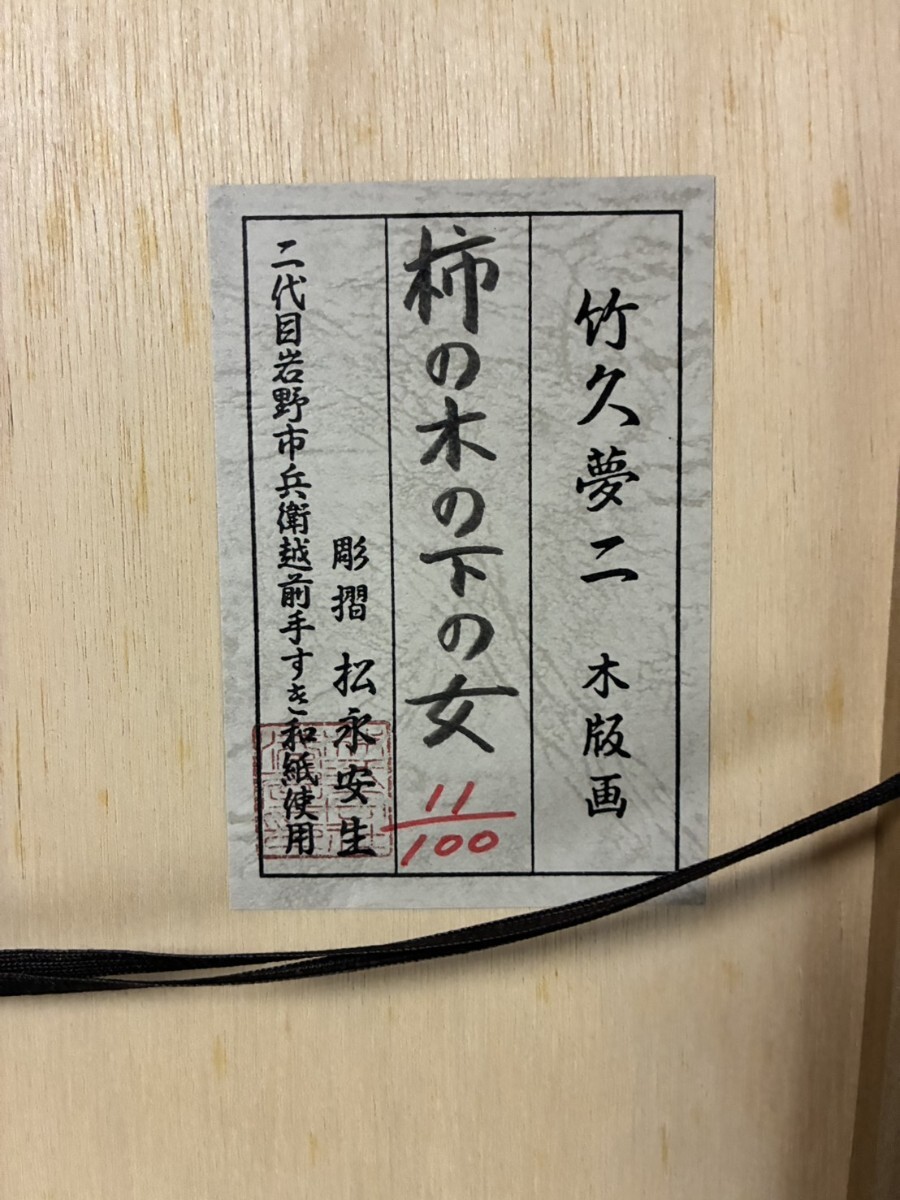 竹久夢二 木版画
柿の木の下の女
11/100
彫摺 松永安生
二代目岩野市兵衛越前手すき和紙使用